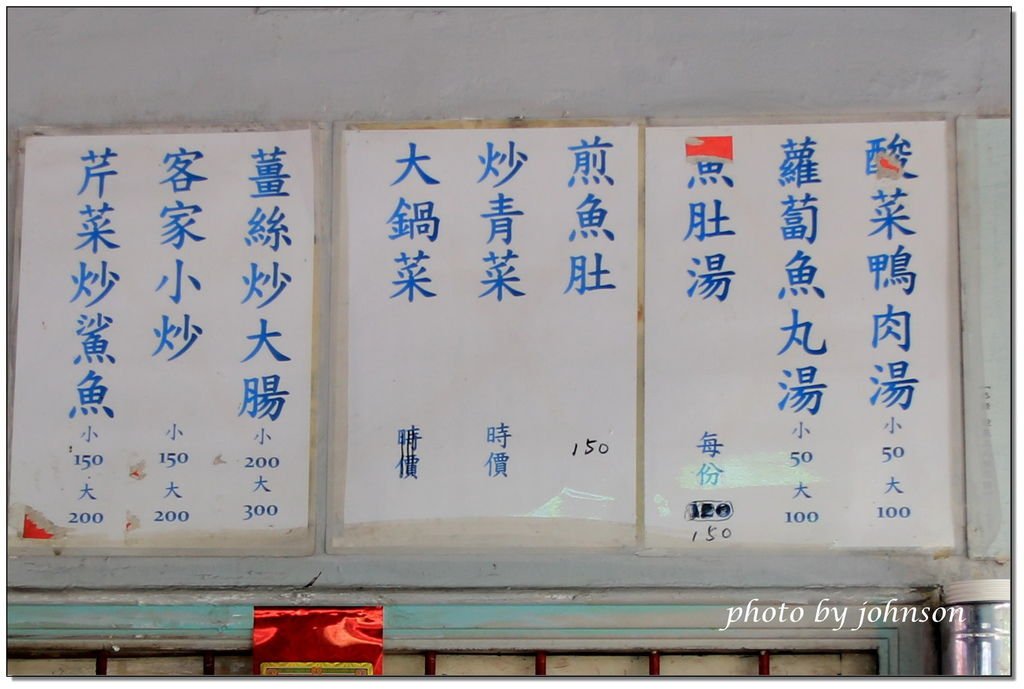 酸菜鴨肉湯 小 50 大 100
蘿蔔魚丸湯 小 50 大 100
魚肚湯 每份 120 150
煎魚肚 150
炒青菜 時價
大鍋菜 時價
薑絲炒大腸 小 200 大 300
客家小炒 小 150 大 200
芹菜炒鯊魚 小 150 大 200
photo by johnson